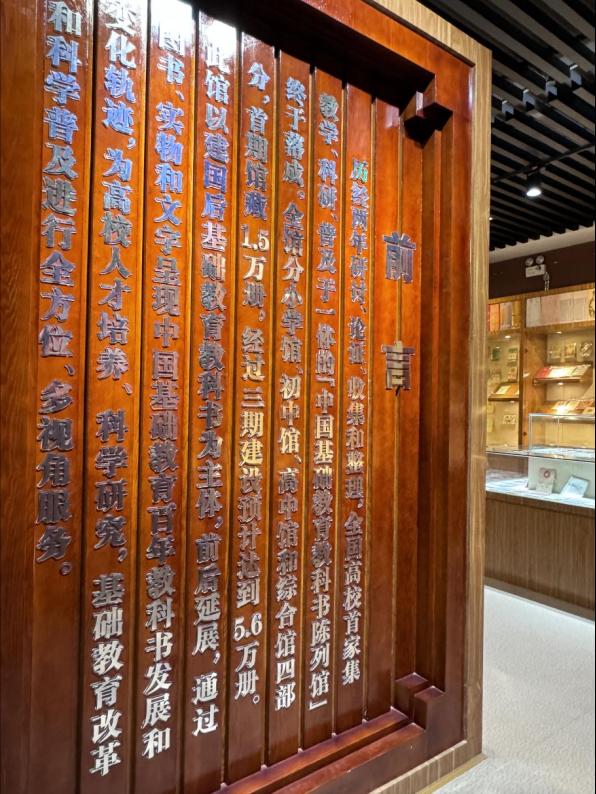 前言
历经两年研讨、论证、收集和整理，全国高校首家集
教学、科研、普及于一体的「中国基础教育教科书陈列馆」
终于落成。全馆分小学馆、初中馆、高中馆和综合馆四部
分，首期馆藏1.5万册，经过三期建设预计达到5.6万册。
此馆以建国后基础教育教科书为主体，前后延展，通过
图书、实物和文字呈现中国基础教育百年教科书发展和
变化轨迹，为高校人才培养、科学研究，基础教育改革
和科学普及进行全方位、多视角服务。